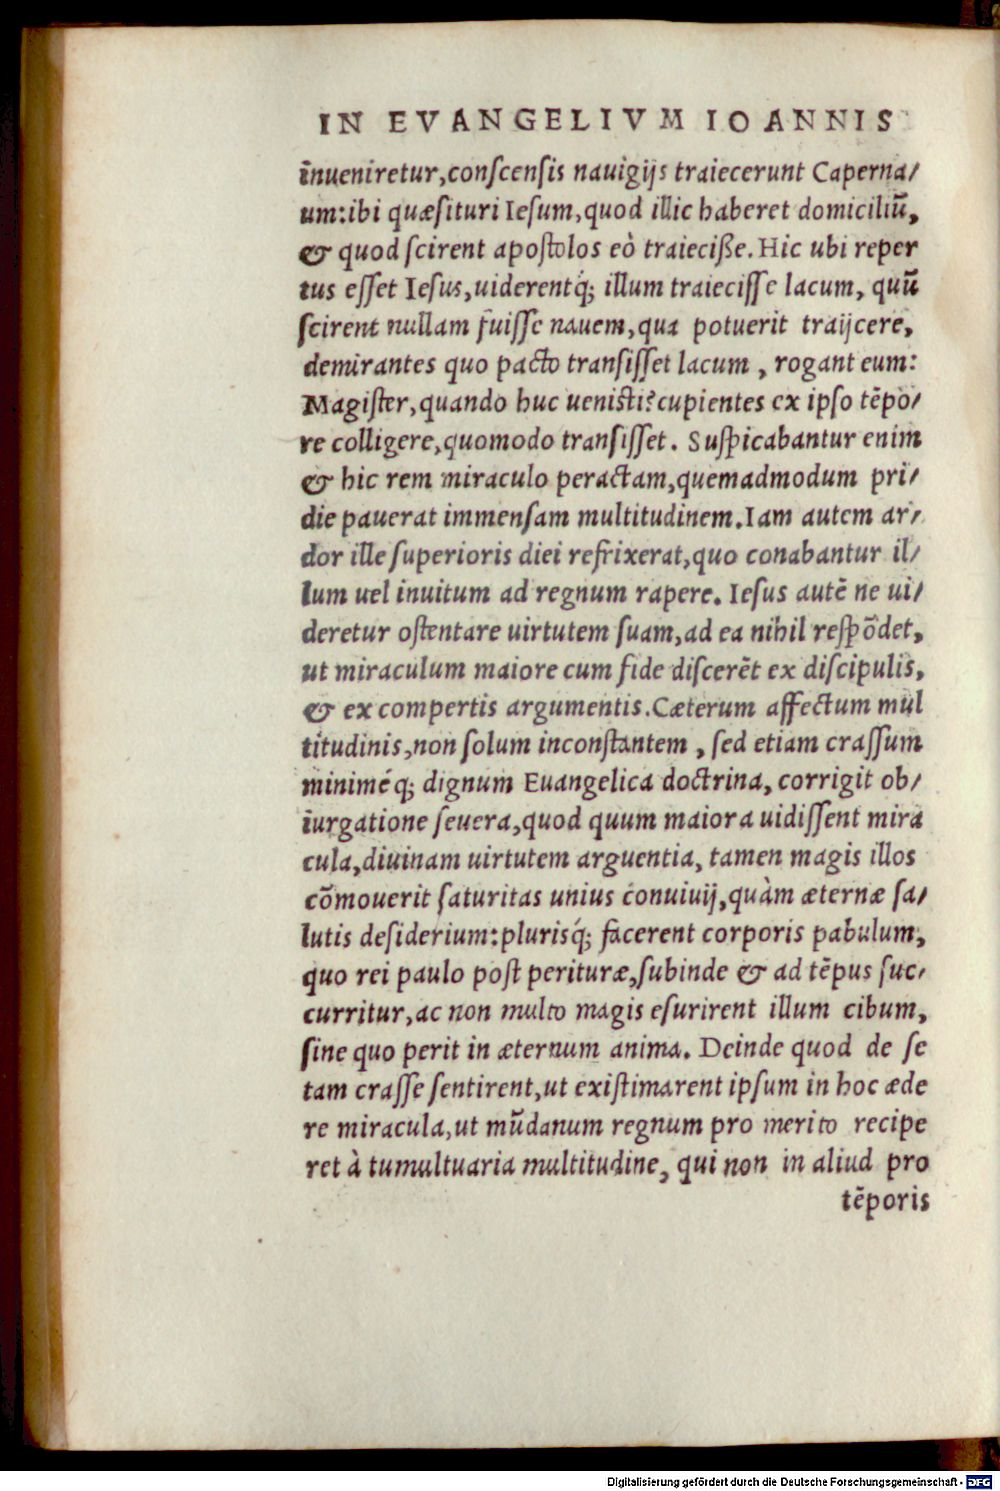 IN EVANGELIVM IOANNIS
inueniretur,conſcenſis nauigijs traiecerunt Caperna/
um:ibi quæſituri Ieſum,quod illic haberet domiciliũ,
& quod ſcirent apoſtolos eò traieciſſe. Hic ubi reper
tus eſſet Ieſus,uiderentq́; illum traieciſſe lacum, quũ
ſcirent nullam fuiſſe nauem,qua potuerit traijcere,
demirantes quo pacto tranſiſſet lacum , rogant eum:
Magiſter,quando huc ueniſti?cupientes ex ipſo tẽpo/
re colligere,quomodo tranſiſſet. Suſpicabantur enim
& hic rem miraculo peractam,quemadmodum pri/
die pauerat immenſam multitudinem.Iam autem ar/
dor ille ſuperioris diei refrixerat,quo conabantur il/
lum uel inuitum ad regnum rapere. Ieſus autẽ ne ui/
deretur oſtentare uirtutem ſuam,ad ea nihil reſpõdet,
ut miraculum maiore cum fide diſcerẽt ex diſcipulis,
& ex compertis argumentis.Cæterum affectum mul
titudinis,non ſolum inconſtantem , ſed etiam craſſum
minimeq́; dignum Euangelica doctrina, corrigit ob/
iurgatione ſeuera,quod quum maiora uidiſſent mira
cula,diuinam uirtutem arguentia, tamen magis illos
cõmouerit ſaturitas unius conuiuij,quàm æternæ ſa/
lutis deſiderium:plurisq́; facerent corporis pabulum,
quo rei paulo poſt perituræ,ſubinde & ad tẽpus ſuc/
curritur,ac non multo magis eſurirent illum cibum,
ſine quo perit in æternum anima. Deinde quod de ſe
tam craſſe ſentirent,ut exiſtimarent ipſum in hoc æde
re miracula,ut mũdanum regnum pro merito recipe
ret à tumultuaria multitudine, qui non in aliud pro
tẽporis
Digitalisierung gefördert durch die Deutsche Forschungsgemeinschaft - DFG